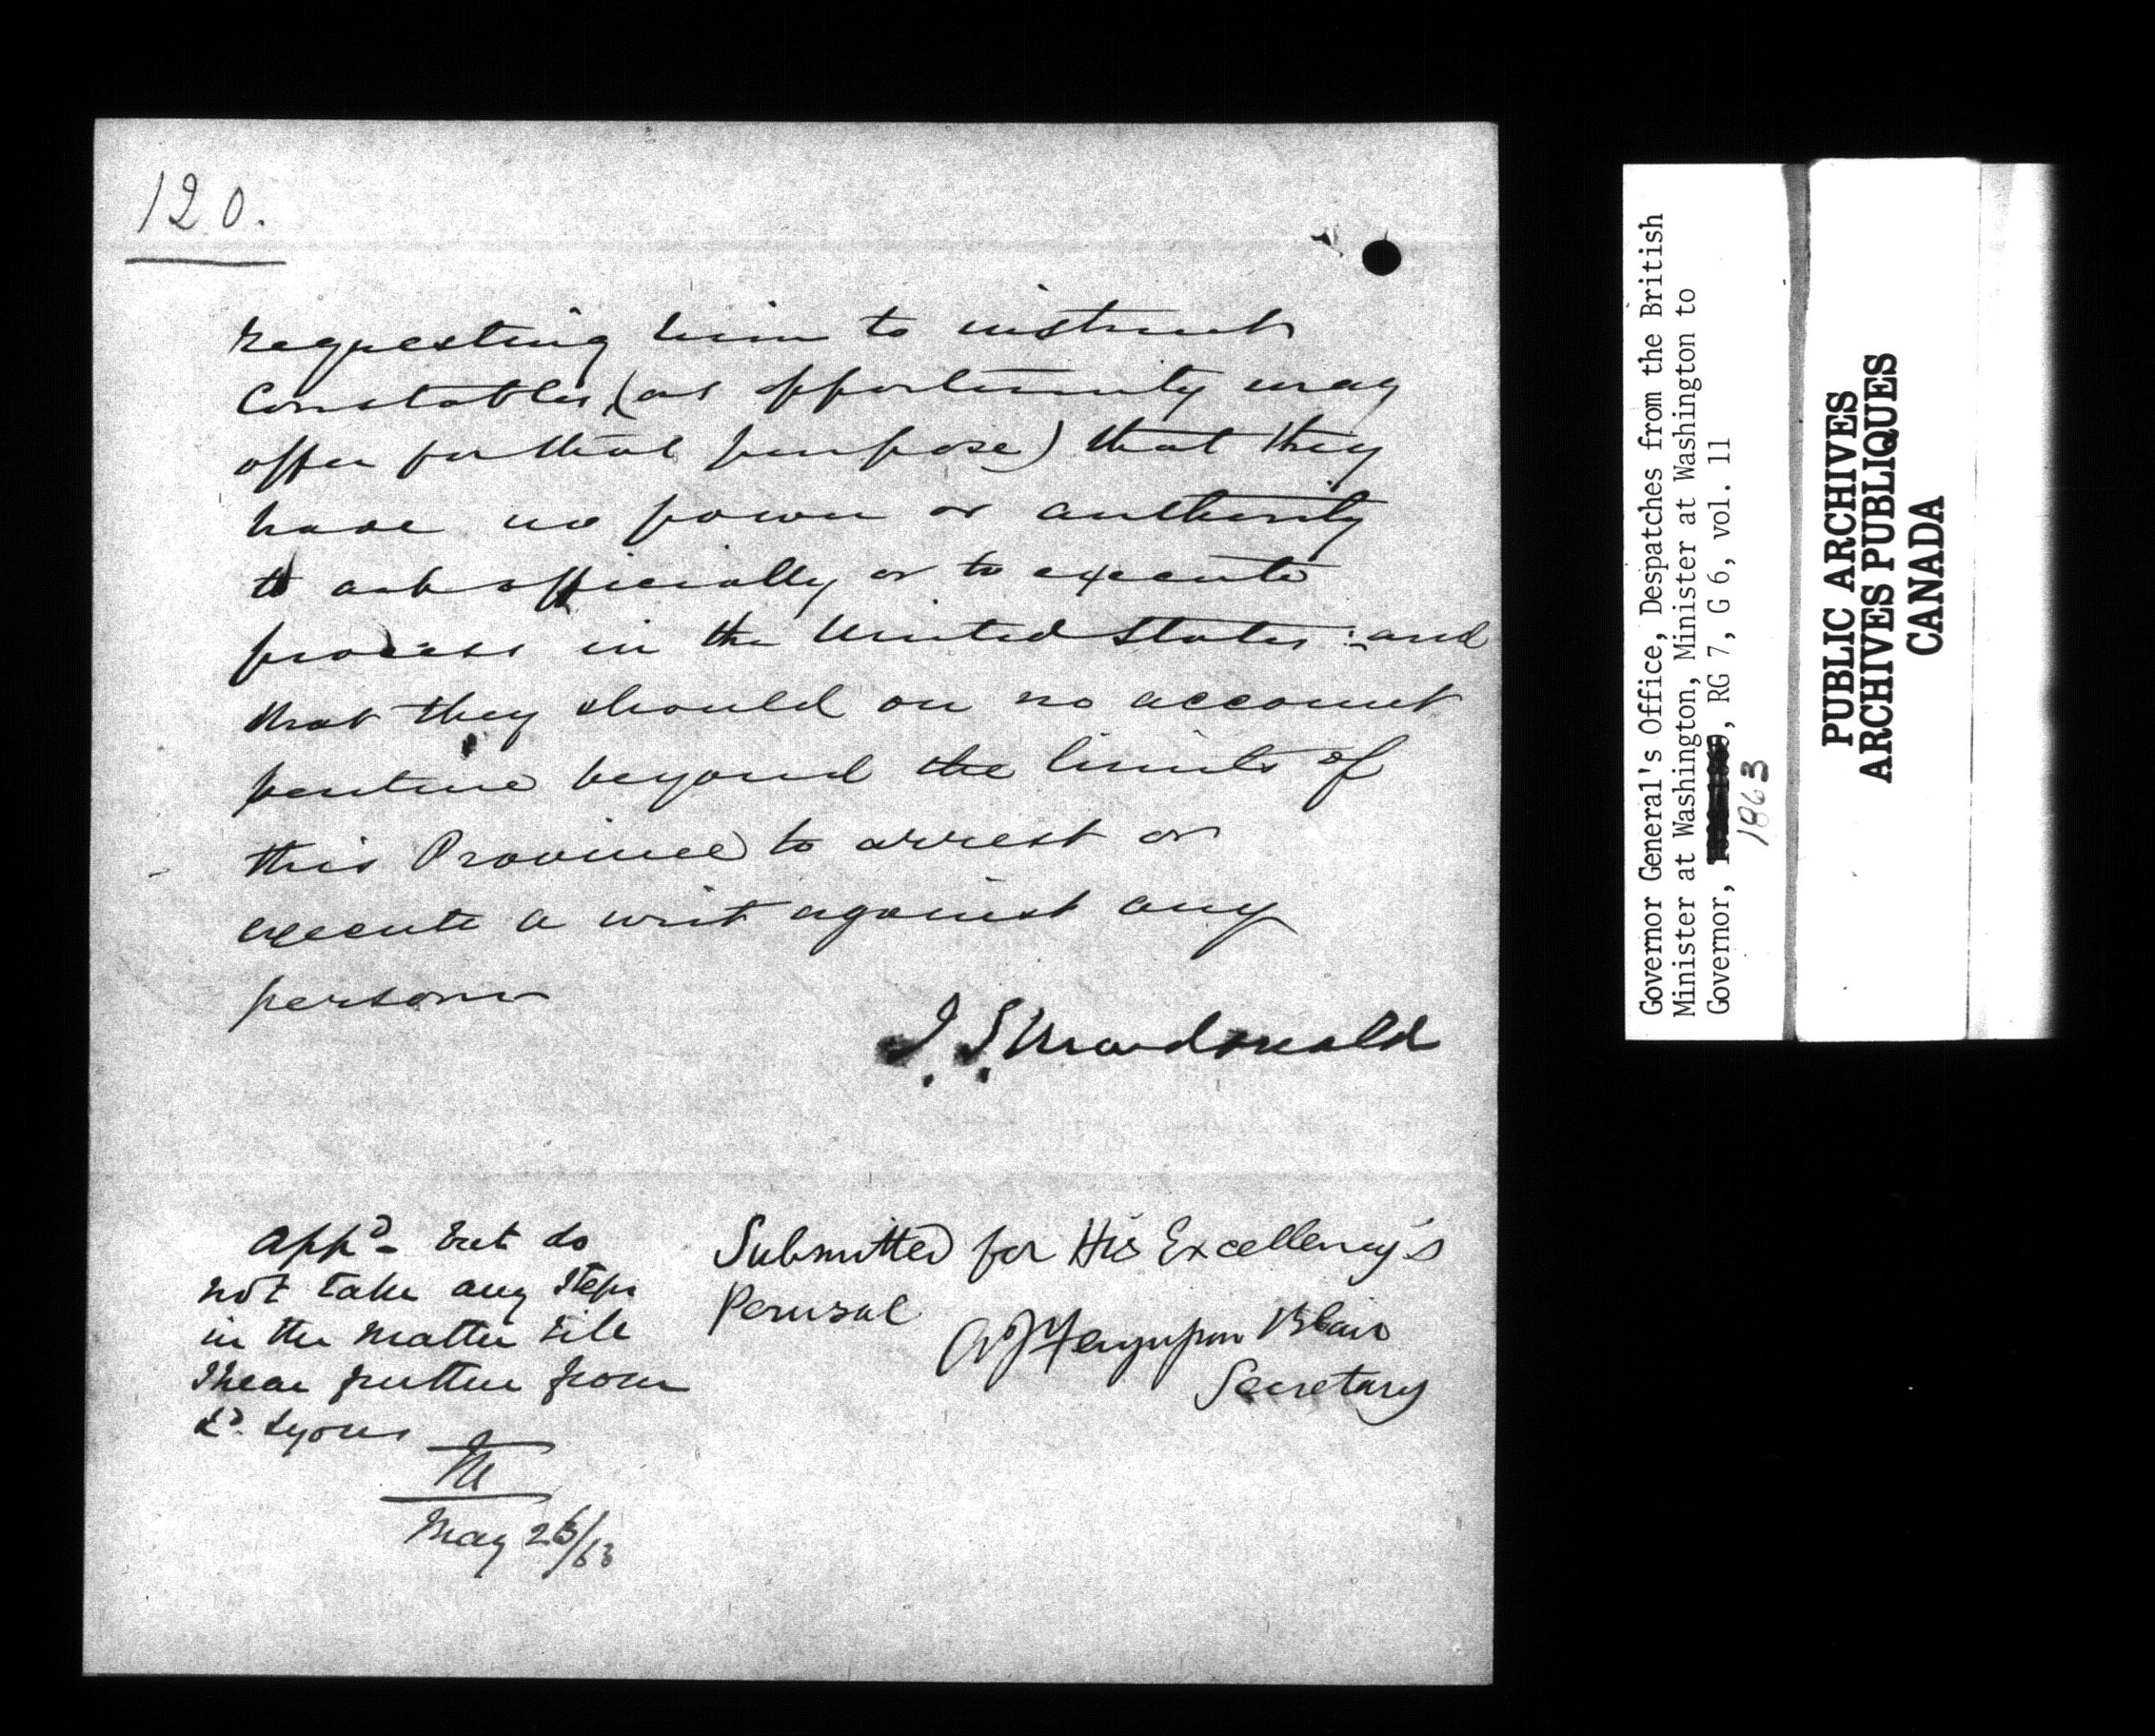 120.
requesting him to instruct
Constables, (as opportunity may
offer for that purpose) that they
have no power or authority
to act officially or to execute
process in the United States :- and
that they should on no account
venture beyond the limits of
this Province to arrest or
execute a writ against any
person
J. S. Macdonald
Appd - but do
not take any steps
in the matter till
I hear further from
Ld. Lyons
M
May 26/63
Submitted for His Excellency's
Perusal
A J Fergusson Blair
Secretary
Governor General's Office, Despatches from the British
Minister at Washington, Minister at Washington to
Governor, , RG 7, G 6, vol. 11
1863
PUBLIC ARCHIVES
ARCHIVES PUBLIQUES
CANADA